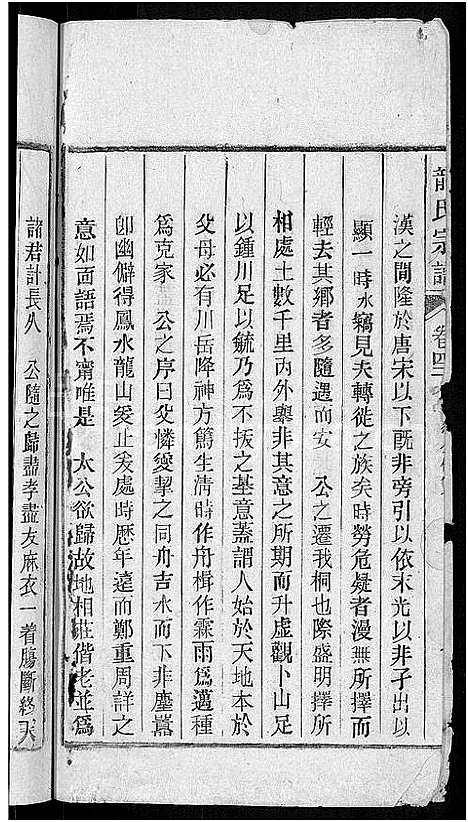 龍氏宗譜 卷四
漢之間隆於唐宋以下旣非旁引以依末光以非矛出以
顯一時水竊見夫轉徙之族矣時勞危疑者漫無所擇而
輕去其鄉者多隨遇而安 公之遷我桐也際盛明擇所
相處土數千里內外舉非其意之所期而升虛觀卜山足
以鍾川足以毓乃爲不拔之基意蓋謂人始於天地本於
父母必有川岳降神方篤生淸時作舟楫作霖雨爲邁種
爲克家 公之序曰父憐奱挈之同舟吉水而下非塵囂
卽幽僻得鳳水龍山爰止爰處時歷年遠而鄭重周詳之
意如面語焉不甯唯是 太公欲歸故地相莊偕老並爲
諸君計長久 公隨之歸盡孝盡友麻衣一着膓斷終天